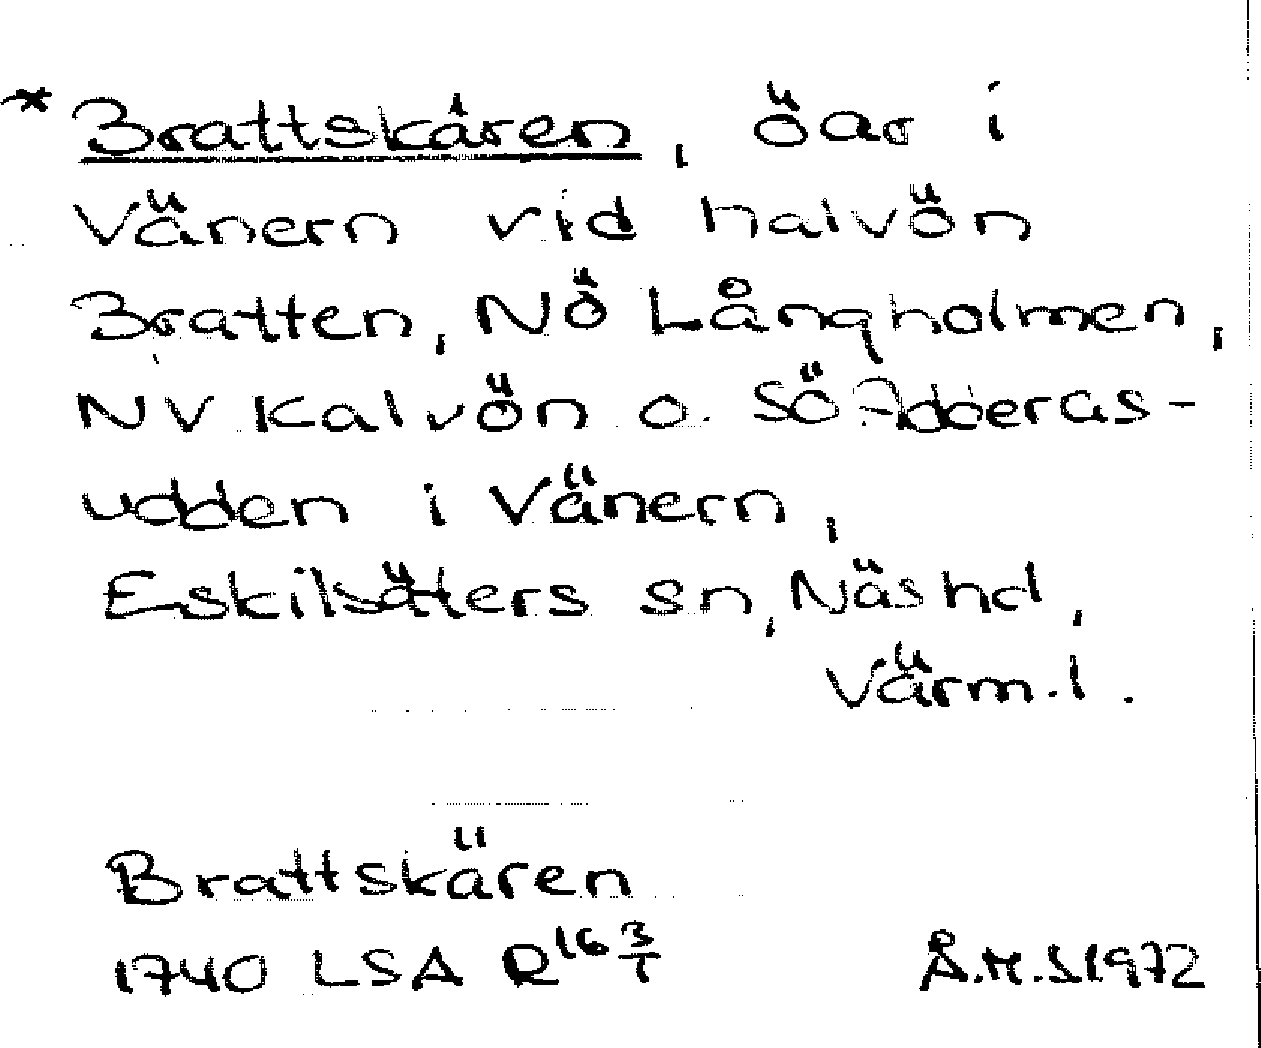 * Brattskären, öar i
Vänern vid halvön
Bratten, NÖ Långholmen,
NV Kalvön o. SÖ
udden i Vänern,
Eskilsäters sn, Näs hd,
Värml.
Brattskären
1740 LSA R16 3/1 Å.H.S 1972